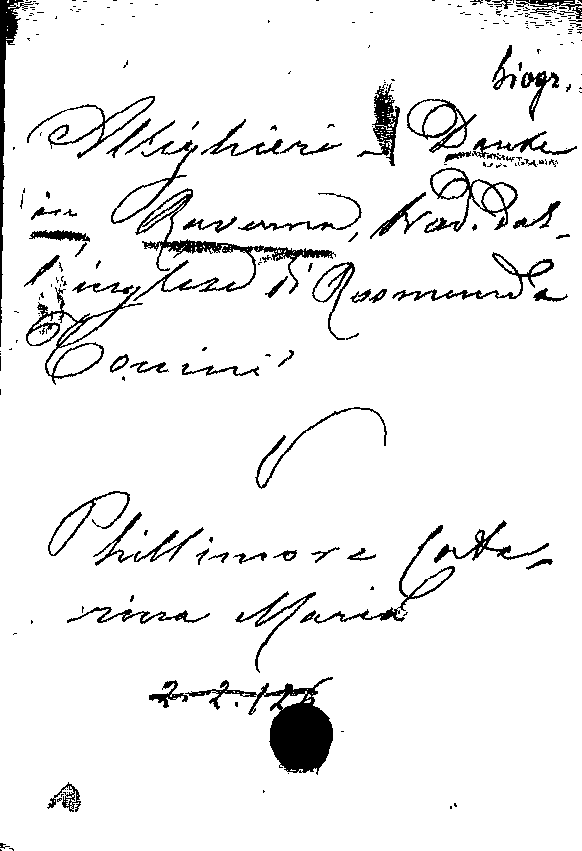 biogr.
Allighieri - Dante
in Ravenna, trad. dal-
l'inglese di Rosmunda
Tonini
V
Phillimore Catte-
rina Maria
2. 2. 126